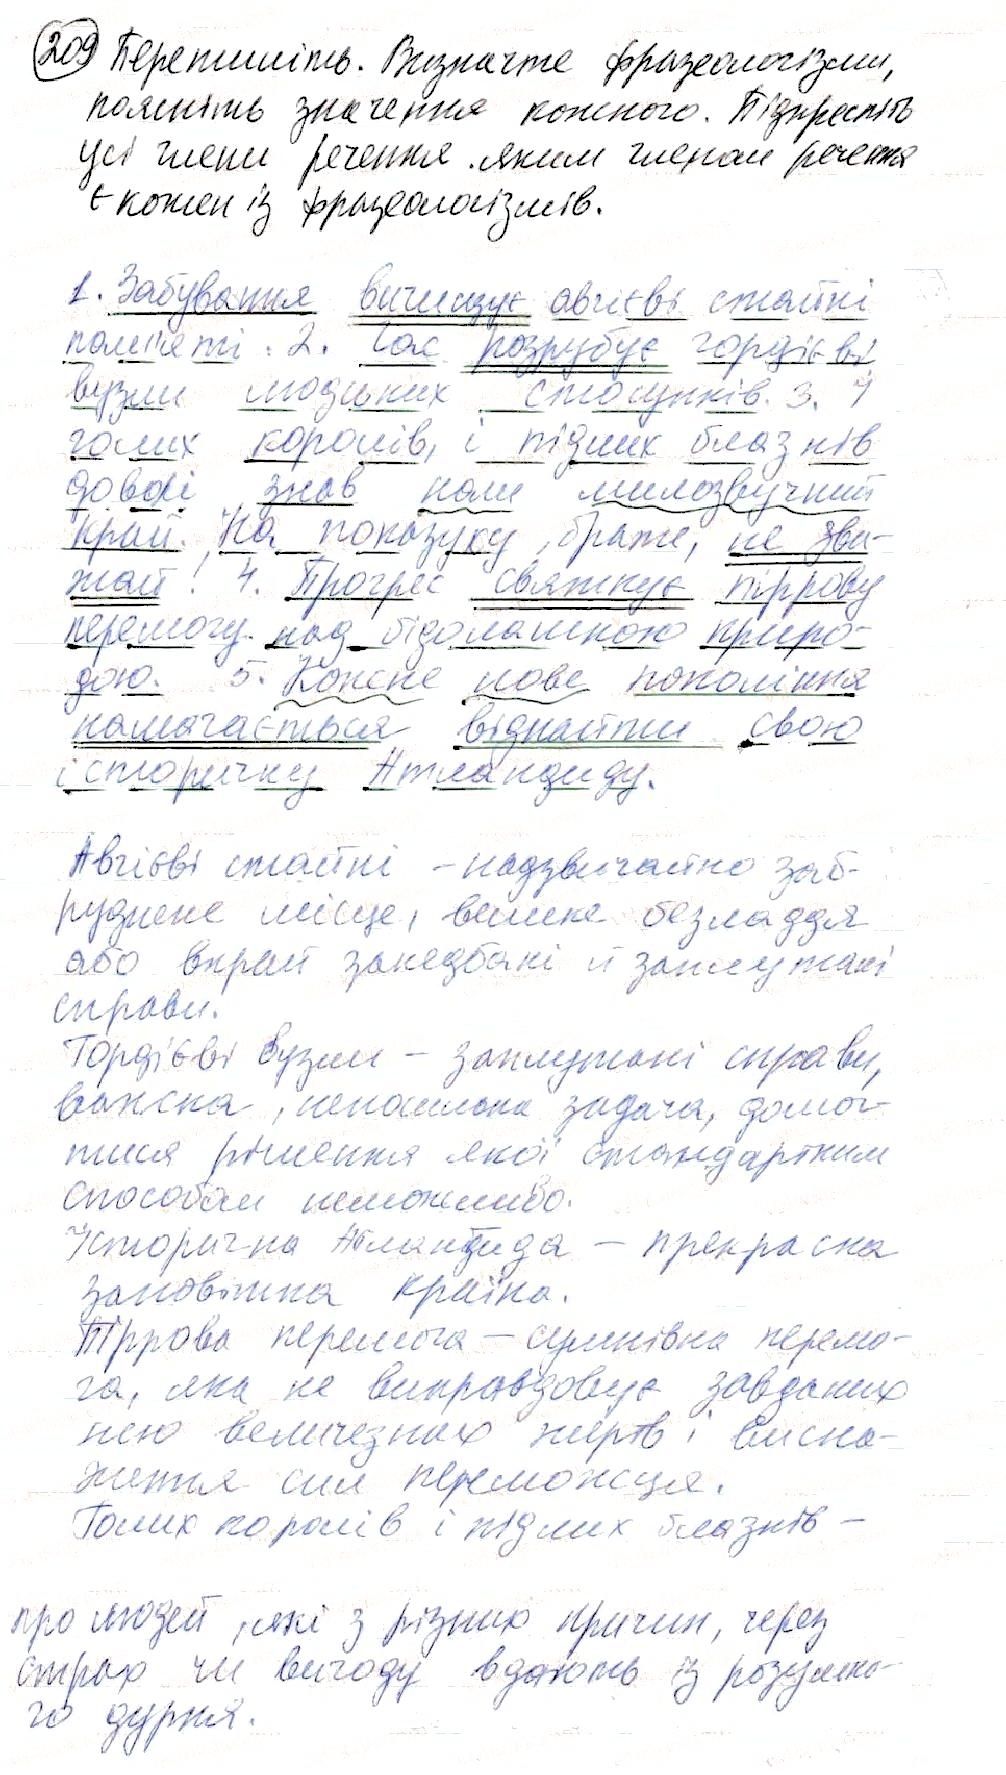 209 Перепишіть. Визначте фразеологізми,
поясніть значення кожного. Підкресліть
усі члени речення. яким членом речення
є кожен із фразеологізмів.
1. Забування вичищує авгієві стайні
пам'яті. 2. Час розрубує гордієві
вузли людських стосунків. 3. І
голих королів, і підлих блазнів
доволі знав наш милозвучний
край. На показуху, брате, не зва-
жай! 4. Прогрес святкує піррову
перемогу над бідолашною приро-
дою. 5. Кожне нове покоління
намагається віднайти свою
історичну Атлантиду.
Авгієві стайні - надзвичайно заб-
руднене місце, велике безладдя
або вкрай занедбані й заплутані
справи.
Гордієві вузли - заплутані справи,
важка, непосильна задача, домог-
тися рішення якої стандартним
способом неможливо.
Історична Атлантида - прекрасна
заповітна країна.
Піррова перемога - сумнівна перемо-
га, яка не виправдовує завданих
нею величезних жертв і висна-
ження сил переможця.
Голих королів і підлих блазнів -
про людей, які з різних причин, через
страх чи вигоду вдають із розумно-
го дурня.